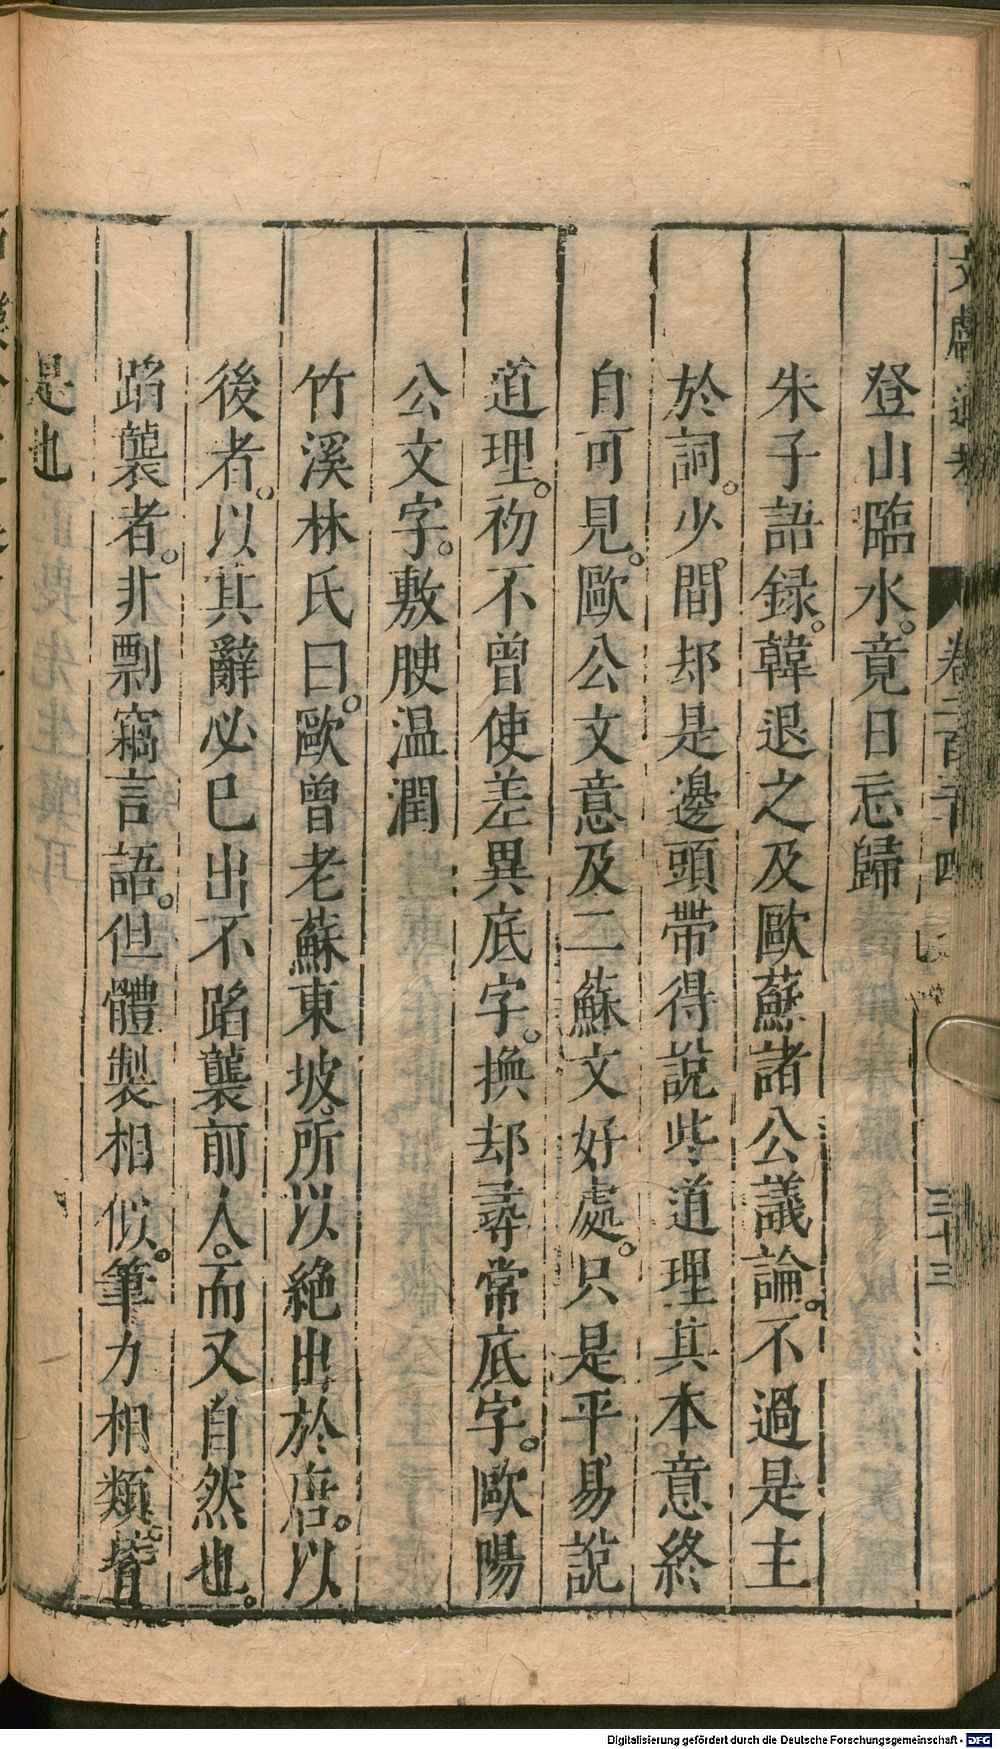 文獻通考 卷二百三十四 三十三
登山臨水。竟日忘歸
朱子語録。韓退之及歐蘇諸公議論。不過是主
於詞。少。間却是邊頭帶得說些道理其本意終
自可見。歐公文意及二蘇文好處。只是平易說
道理。初不曾使差異底字。換却尋常底字。歐陽
公文字。敷腴温潤
竹溪林氏曰。歐曾老蘇東坡。所以絶出於唐。以
後者。以其辭必已出不蹈襲前人。而又自然也。
蹈襲者。非剽竊言語。但體製相似。筆力相類皆
是也
Digitalisierung gefördert durch die Deutsche Forschungsgemeinschaft - DFG